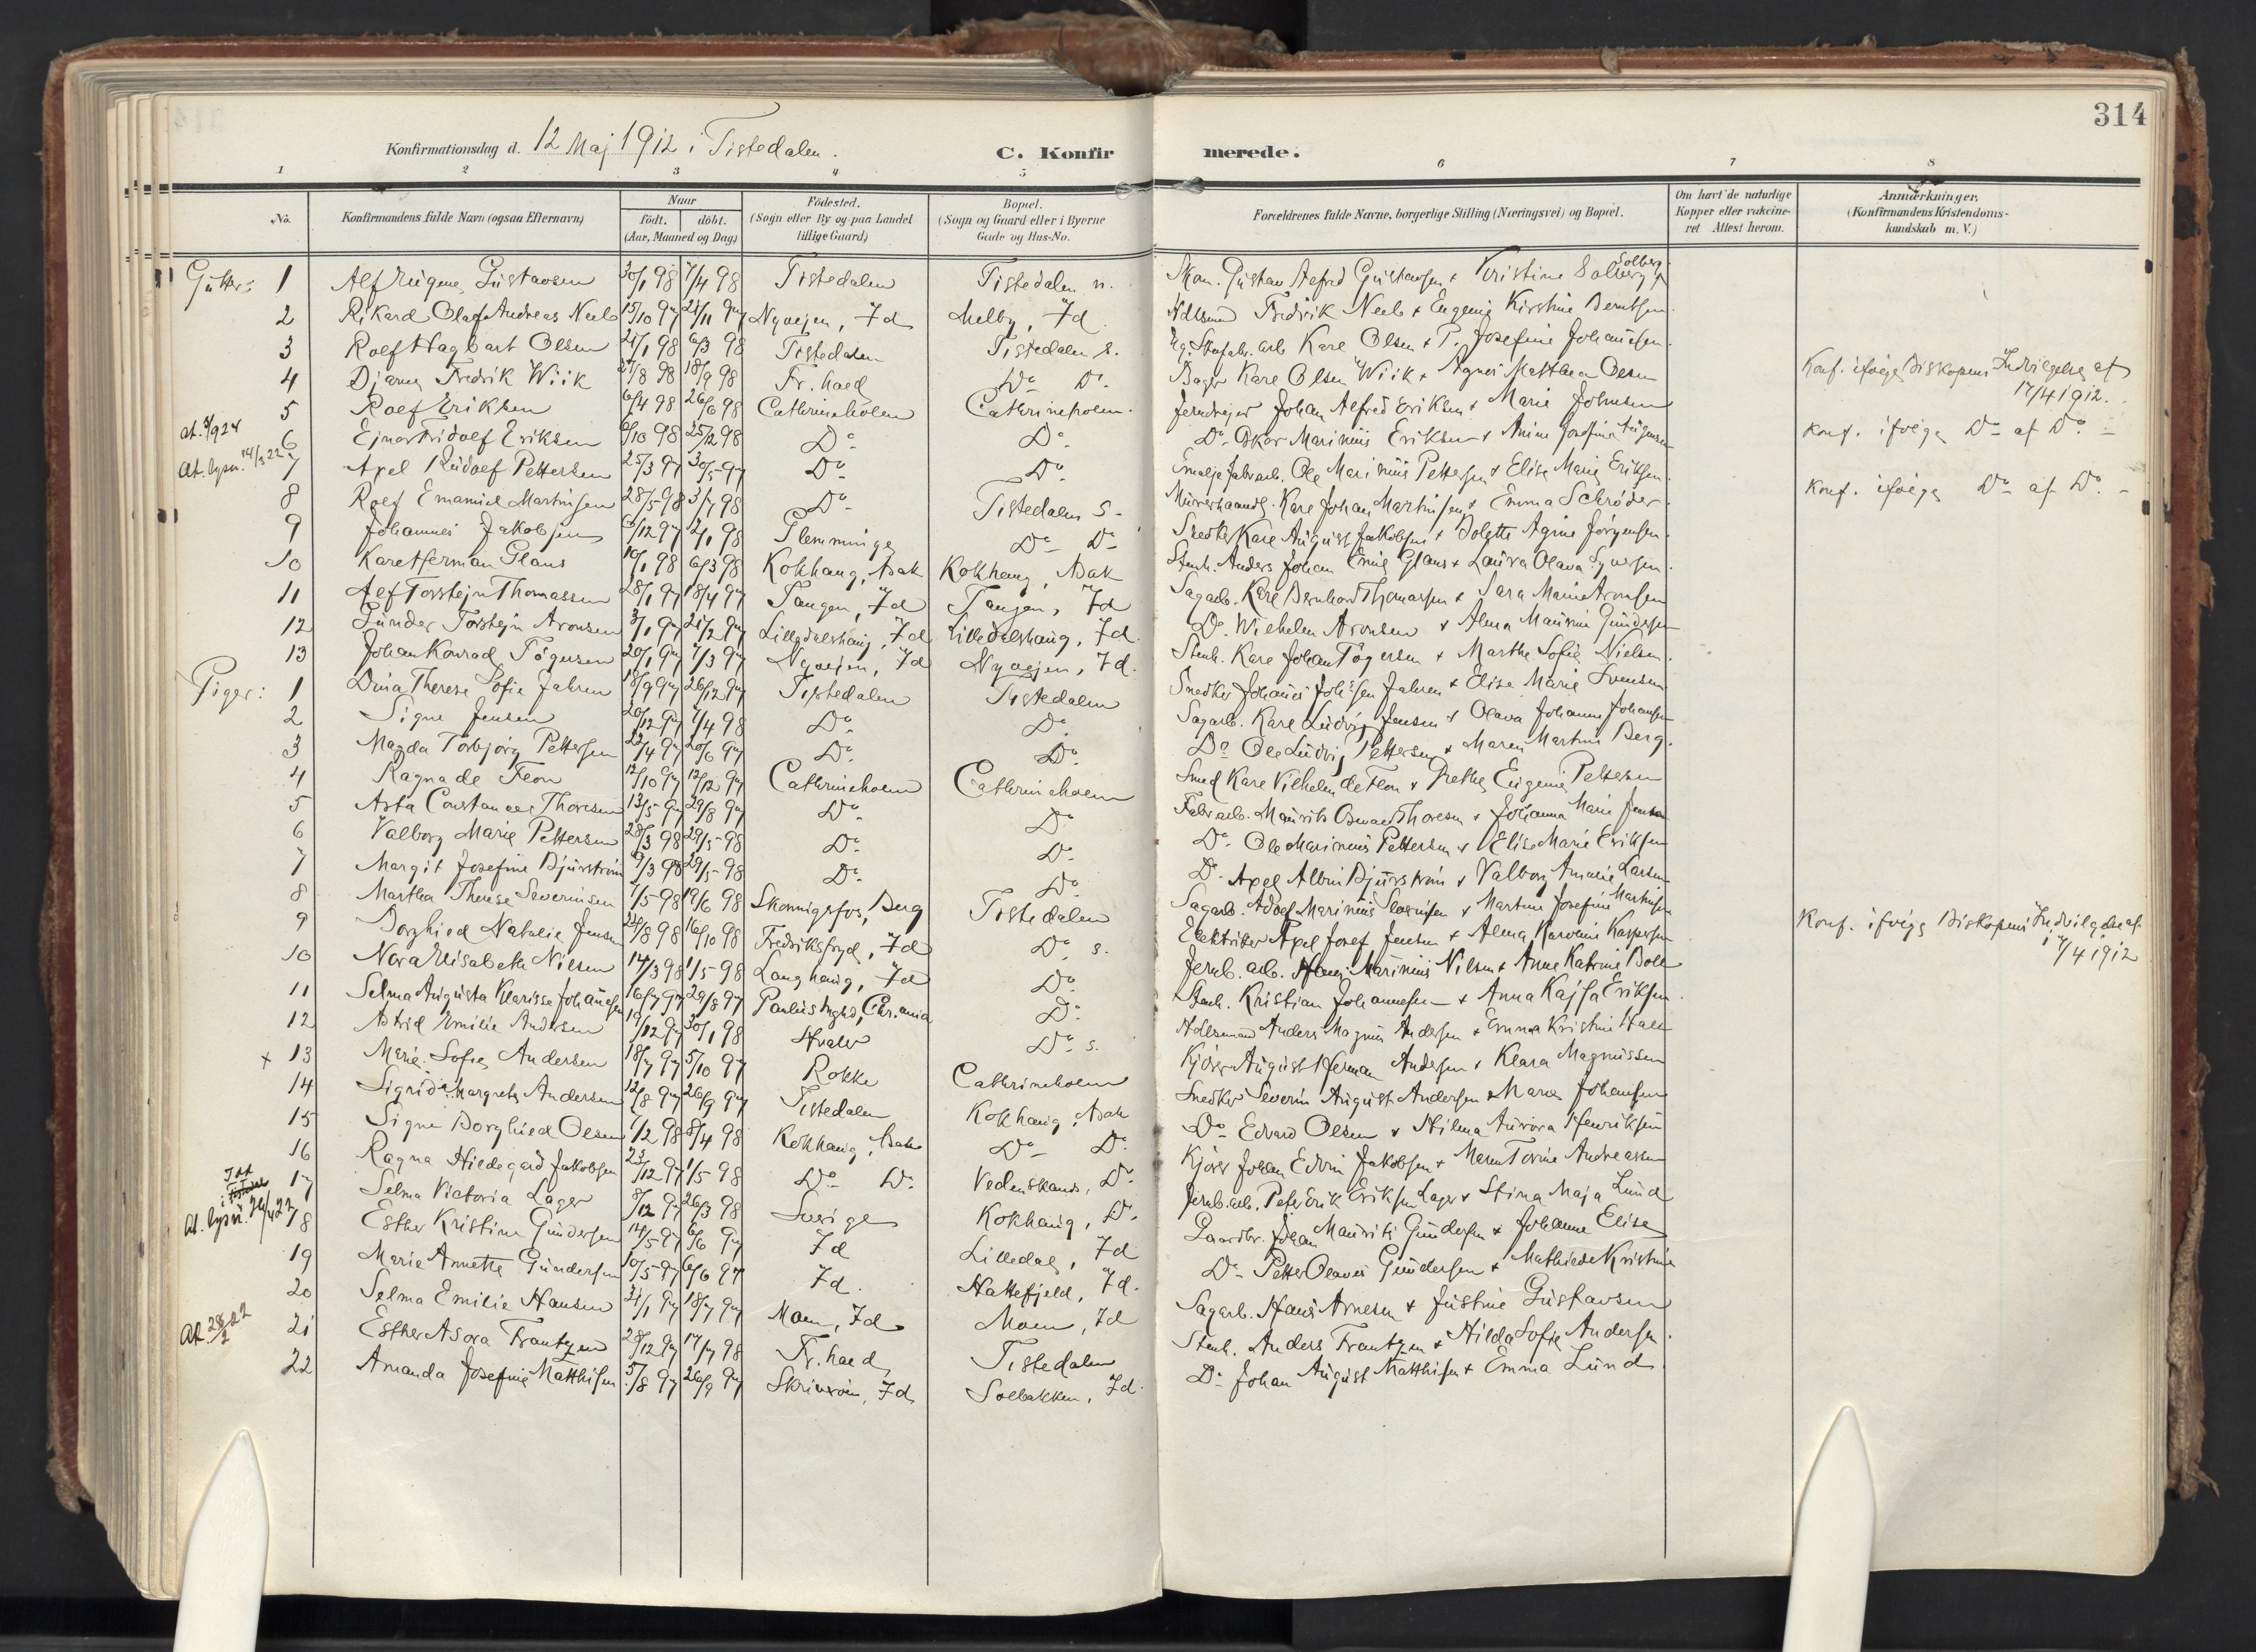 314
Konfirmationsdag d. 12 Maj 1912 i Tistedalen.
C. Konfirmerede.
1 2 3 4 5 6 7 8
No.
Konfirmandens fulde Navn (ogsaa Efternavn)
Naar
födt. döbt.
(Aar, Maaned og Dag)
Födested.
(Sogn eller By og paa Landet
tillige Gaard)
Bopæl.
(Sogn og Gaard eller i Byerne
Gade og Hus-No.
Forældrenes fulde Navne, borgerlige Stilling (Næringsvei) og Bopæl.
Om havt de naturlige
Kopper eller vakcine-
ret Attest herom.
Anmærkninger.
(Konfirmandens Kristendoms-
kundskab m. V.)
Gutter: 1 Alf Eugene Gustavsen 30/1 98 7/4 98 Tistedalen Tistedalen n. Gustav Alfred Gustavsen + Kristine Solberg
2 Rikard Olaf Andreas Neeb 15/10 97 21/11 97 Nyvejen, Id Melby, Id Fredrik Neeb + Eugenie Kirstine Berntsen
3 Rolf Hagbart Olsen 21/1 98 6/3 98 Tistedalen Tistedalen s. Karl Olsen + P. Josefine Johansen
4 Bjarne Fredrik Wiik 27/8 98 18/9 98 Fr.hald Do Do. Bager Karl Olsen Wiik + Agnes Matthea Olsen Konf. ifølge Biskopens Indvilgelse af 17/4 1912.
5 Rolf Eriksen 6/4 98 26/6 98 Cathrineholm Cathrineholm. Jerndrejer Johan Alfred Eriksen + Marie Johnsen
6 Ejnar Fridolf Eriksen 6/10 98 25/12 98 Do. Do. Do. Oskar Marinius Eriksen + Anine Josefine Konf. ifølge Do af Do.
At. lysn. 14/3 22 7 Axel Rudolf Pettersen 25/3 97 30/5 97 Do. Do. Emaljefabrarb. Ole Marinius Pettersen + Elise Marie Eriksen
8 Rolf Emanuel Martinsen 28/5 98 3/7 98 Do. Tistedalen s. Karl Johan Martinsen + Emma Schrøder Konf. ifølge Do af Do.
9 Johannes Jakobsen 6/12 97 2/1 98 Glemminge Do Do Snedker Karl August Jakobsen + Bolette Agine Jørgensen
10 Karl Herman Glans 10/1 98 6/3 98 Kokhaug, Asak Kokhaug, Asak Stenh. Anders Johan Emil Glans + Laura Olava Syversen
11 Alf Torstejn Thomassen 28/1 97 18/4 97 Tangen, Id Tangen, Id Sagarb. Karl Bernhard Thomassen + Sara Marie Aronsen
12 Gunder Torstejn Aronsen 3/1 97 21/2 97 Lilledalshaug, Id Lilledalshaug, Id. Do. Wilhelm Aronsen + Alma Maurine Gundersen
13 Johan Konrad Tøgersen 20/1 97 7/3 97 Nyvejen, Id Nyvejen, Id. Stenh. Karl Johan Tøgersen + Marthe Sofie Nielsen
Piger: 1 Dina Therese Sofie Jahren 18/9 97 26/12 97 Tistedalen Tistedalen Snedker Johannes Johsen Jahren + Elise Marie Svensen
2 Signe Jensen 20/12 97 7/4 98 Do. Do. Sagarb. Karl Ludvig Jensen + Olava Johanne Johansen
3 Magda Torbjørg Pettersen 22/4 97 20/6 97 Do. Do. Do Ole Ludvig Pettersen + Maren Martine Berg.
4 Ragna de Flon 12/10 97 12/12 97 Cathrineholm Cathrineholm Smed Karl Vilhelm de Flon + Grethe Eugenie Pettersen
5 Asta Constance Thoresen 13/5 97 29/8 97 Do. Do. Fabrarb. Maurits Osvald Thoresen + Johanna Marie Jensen
6 Valborg Marie Pettersen 28/3 98 29/5 98 Do. Do. Do. Ole Marinius Pettersen + Elise Marie Eriksen
7 Margit Josefine Bjurstrøm 9/3 98 29/5 98 Do. Do. Do. Axel Albin Bjurstrøm + Valborg Amalie Larsen
8 Martha Therese Severinsen 7/5 98 19/6 98 Skonningsfos, Berg Tistedalen Sagarb. Adolf Marinius Severinsen + Martine Josefine Martinsen
9 Borghild Natalie Jensen 28/8 98 16/10 98 Fredriksfryd, Id Do. s. Elektriker Axel Josef Jensen + Alma Karoline Kaspersen Konf. ifølge Biskopens Indvilgelse af 17/4 1912
10 Nora Elisabeth Nilsen 14/3 98 1/5 98 Langhaug, Id Do. Jernb. arb. Hans Marinius Nilsen + Anne Katrine Boll
11 Selma Augusta Klarisse Johansen 16/7 97 29/8 97 Chr.ania Do. Stenh. Kristian Johannesen + Anna Kajsa Eriksen
12 Astrid Emilie Andersen 19/12 97 30/1 98 Hvaler Do. s. Anders Magnus Andersen + Emma Kristine Hall
x 13 Marie Sofie Andersen 18/7 97 5/10 97 Rokke Cathrineholm Kjører August Herman Andersen + Klara Magnussen
14 Sigrid Margrete Andersen 12/8 97 26/9 97 Tistedalen Kokhaug, Asak Snedker Severin August Andersen + Maren Johansen
15 Signe Borghild Olsen 7/2 98 8/4 98 Kokhaug, Asak Do Do. Do Edvard Olsen + Hilma Aurora Henriksen
16 Ragna Hildegard Jakobsen 23/12 97 1/5 98 Do Do. Vedenskaus, Do. Kjører Johan Edvin Jakobsen + Maren Torine Andreassen
17 Selma Victoria Lager 8/12 97 26/3 98 Sverige Kokhaug, Do. Jernb.arb. Peter Erik Eriksen Lager + Stina Maja Lund
At. lysn. 26/4 22 18 Esther Kristine Gundersen 14/5 97 6/6 97 Id Lilledal, Id Gaardbr. Johan Maurits Gundersen + Johanne Elise
19 Marie Annette Gundersen 10/5 97 6/6 97 Id. Hattefjeld, Id. Do Petter Olaves Gundersen + Mathilde Kristine
20 Selma Emilie Hansen 31/1 97 18/7 97 Moen, Id Moen, Id Sagarb. Hans Arnesen + Justine Gustavsen
At. 28/2 22 21 Esther Asora Frantzen 28/12 97 17/7 98 Fr.hald Tistedalen Stenh. Anders Frantzen + Hilda Sofie Andersen
22 Amanda Josefine Matthisen 5/8 97 26/9 97 Skriverøen, Id Solbakken, Id. Do. Johan August Matthisen + Emma Lund